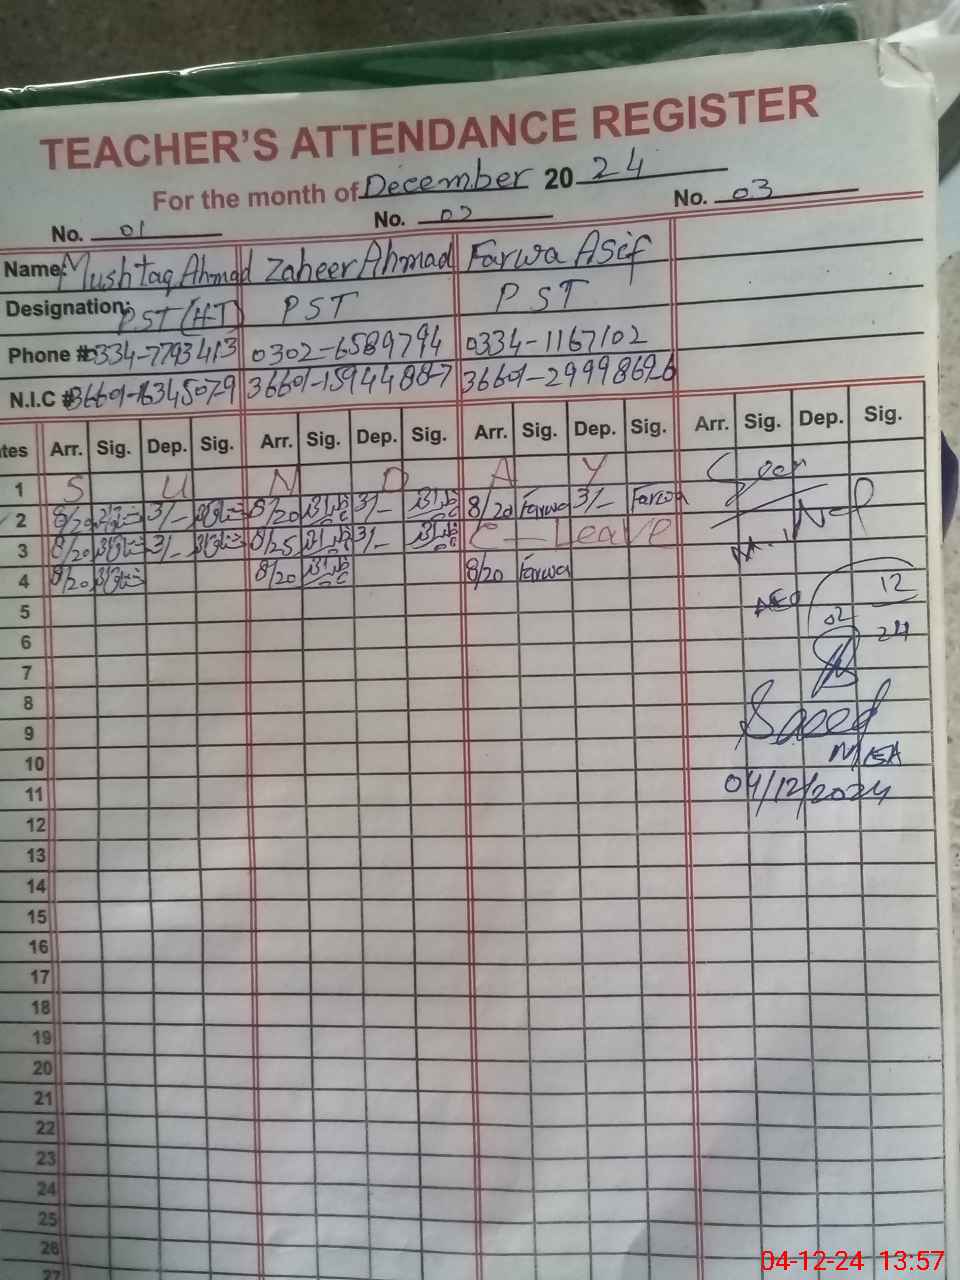 TEACHER'S ATTENDANCE REGISTER
For the month of December 2024
No. 01 No. 02 No. 03
Name: Mushtaq Ahmad Zaheer Ahmad Farwa Asif
Designation: PST (HT) PST PST
Phone # 0334-7793413 0302-6589794 0334-1167102
N.I.C # 36601-1594488-7 36601-29998626
tes Arr. Sig. Dep. Sig. Arr. Sig. Dep. Sig. Arr. Sig. Dep. Sig. Arr. Sig. Dep. Sig.
1 S U N D A Y
2 8/20 مشتاق 3/- مشتاق 8/20 3/- 8/20 Farwa 3/- Farwa
3 8/20 مشتاق 3/- مشتاق 8/25 3/- C-Leave
4 8/20 مشتاق 8/20 8/20 Farwa
Seen
AEO
02 12
24
5
6
7
8
9 Saeed
10 MEA
11 04/12/2024
12
13
14
15
16
17
18
19
20
21
22
23
24
25
26
27
04-12-24 13:57